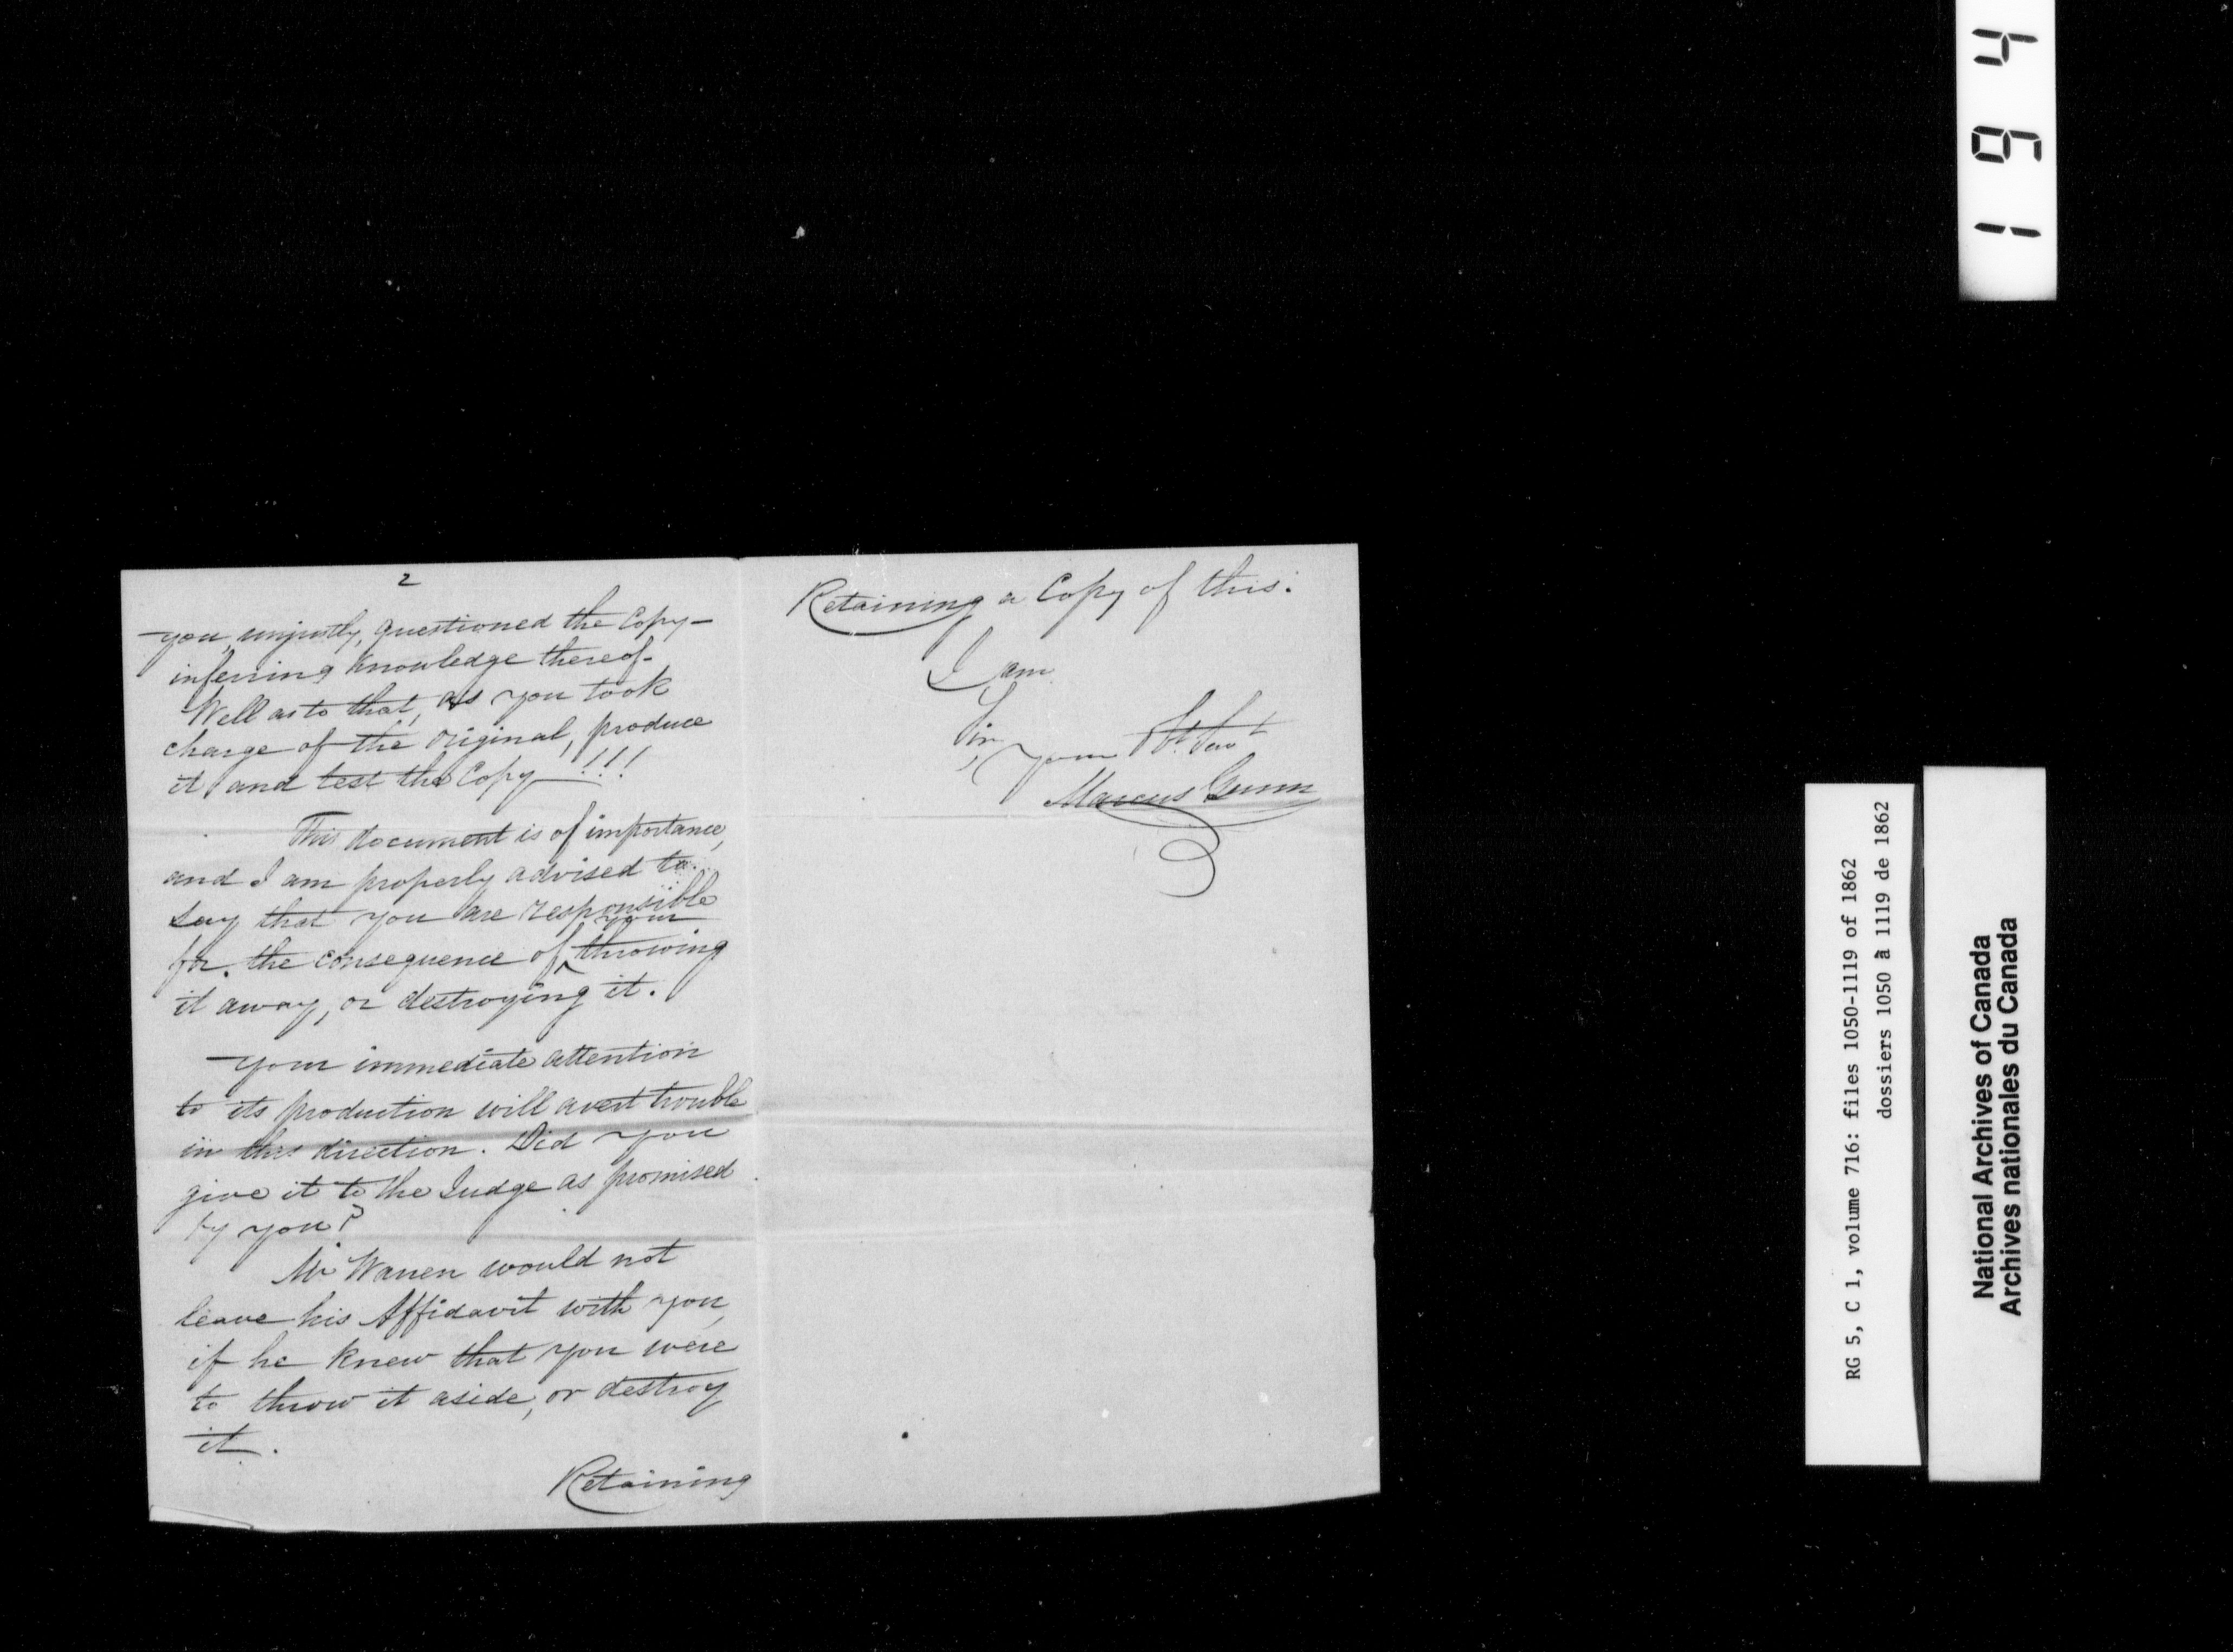 2
you, unjustly, questioned the Copy-
inferring knowledge thereof-
Well as to that, as you took
charge of the Original, produce
it and test the Copy!!!
This document is of importance,
and I am properly advised to
say that you are responsible
your
for the consequence of throwing
it away, or destroying it.
Your immediate attention
to its production will avert trouble
in this direction. Did you
give it to the Judge as promised
by you?
Mr Warren would not
leave his Affidavit with you,
if he knew that you were
to throw it aside, or destroy
it.
Retaining
Retaining a Copy of this.
I am
Sir,
Your Obt. Servt
Marcus Gunn
194
RG 5, C 1, volume 716: files 1050-1119 of 1862
dossiers 1050 à 1119 de 1862
National Archives of Canada
Archives nationales du Canada